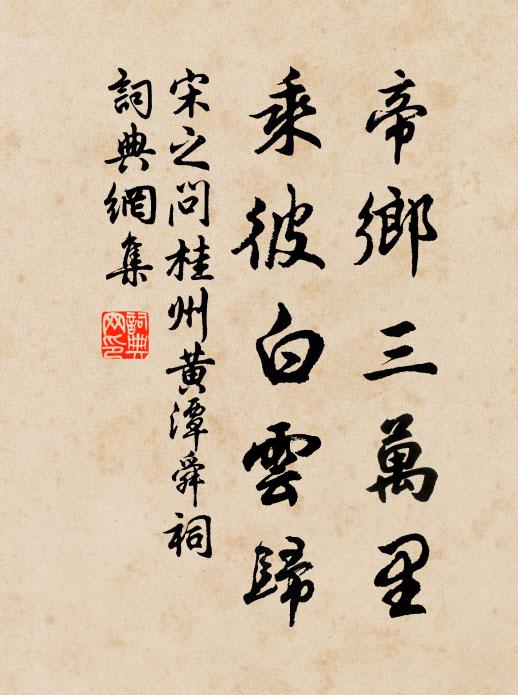 帝鄉三萬里
乘彼白雲歸
宋之問桂州黃潭舜祠
詞典網集
詞典網印